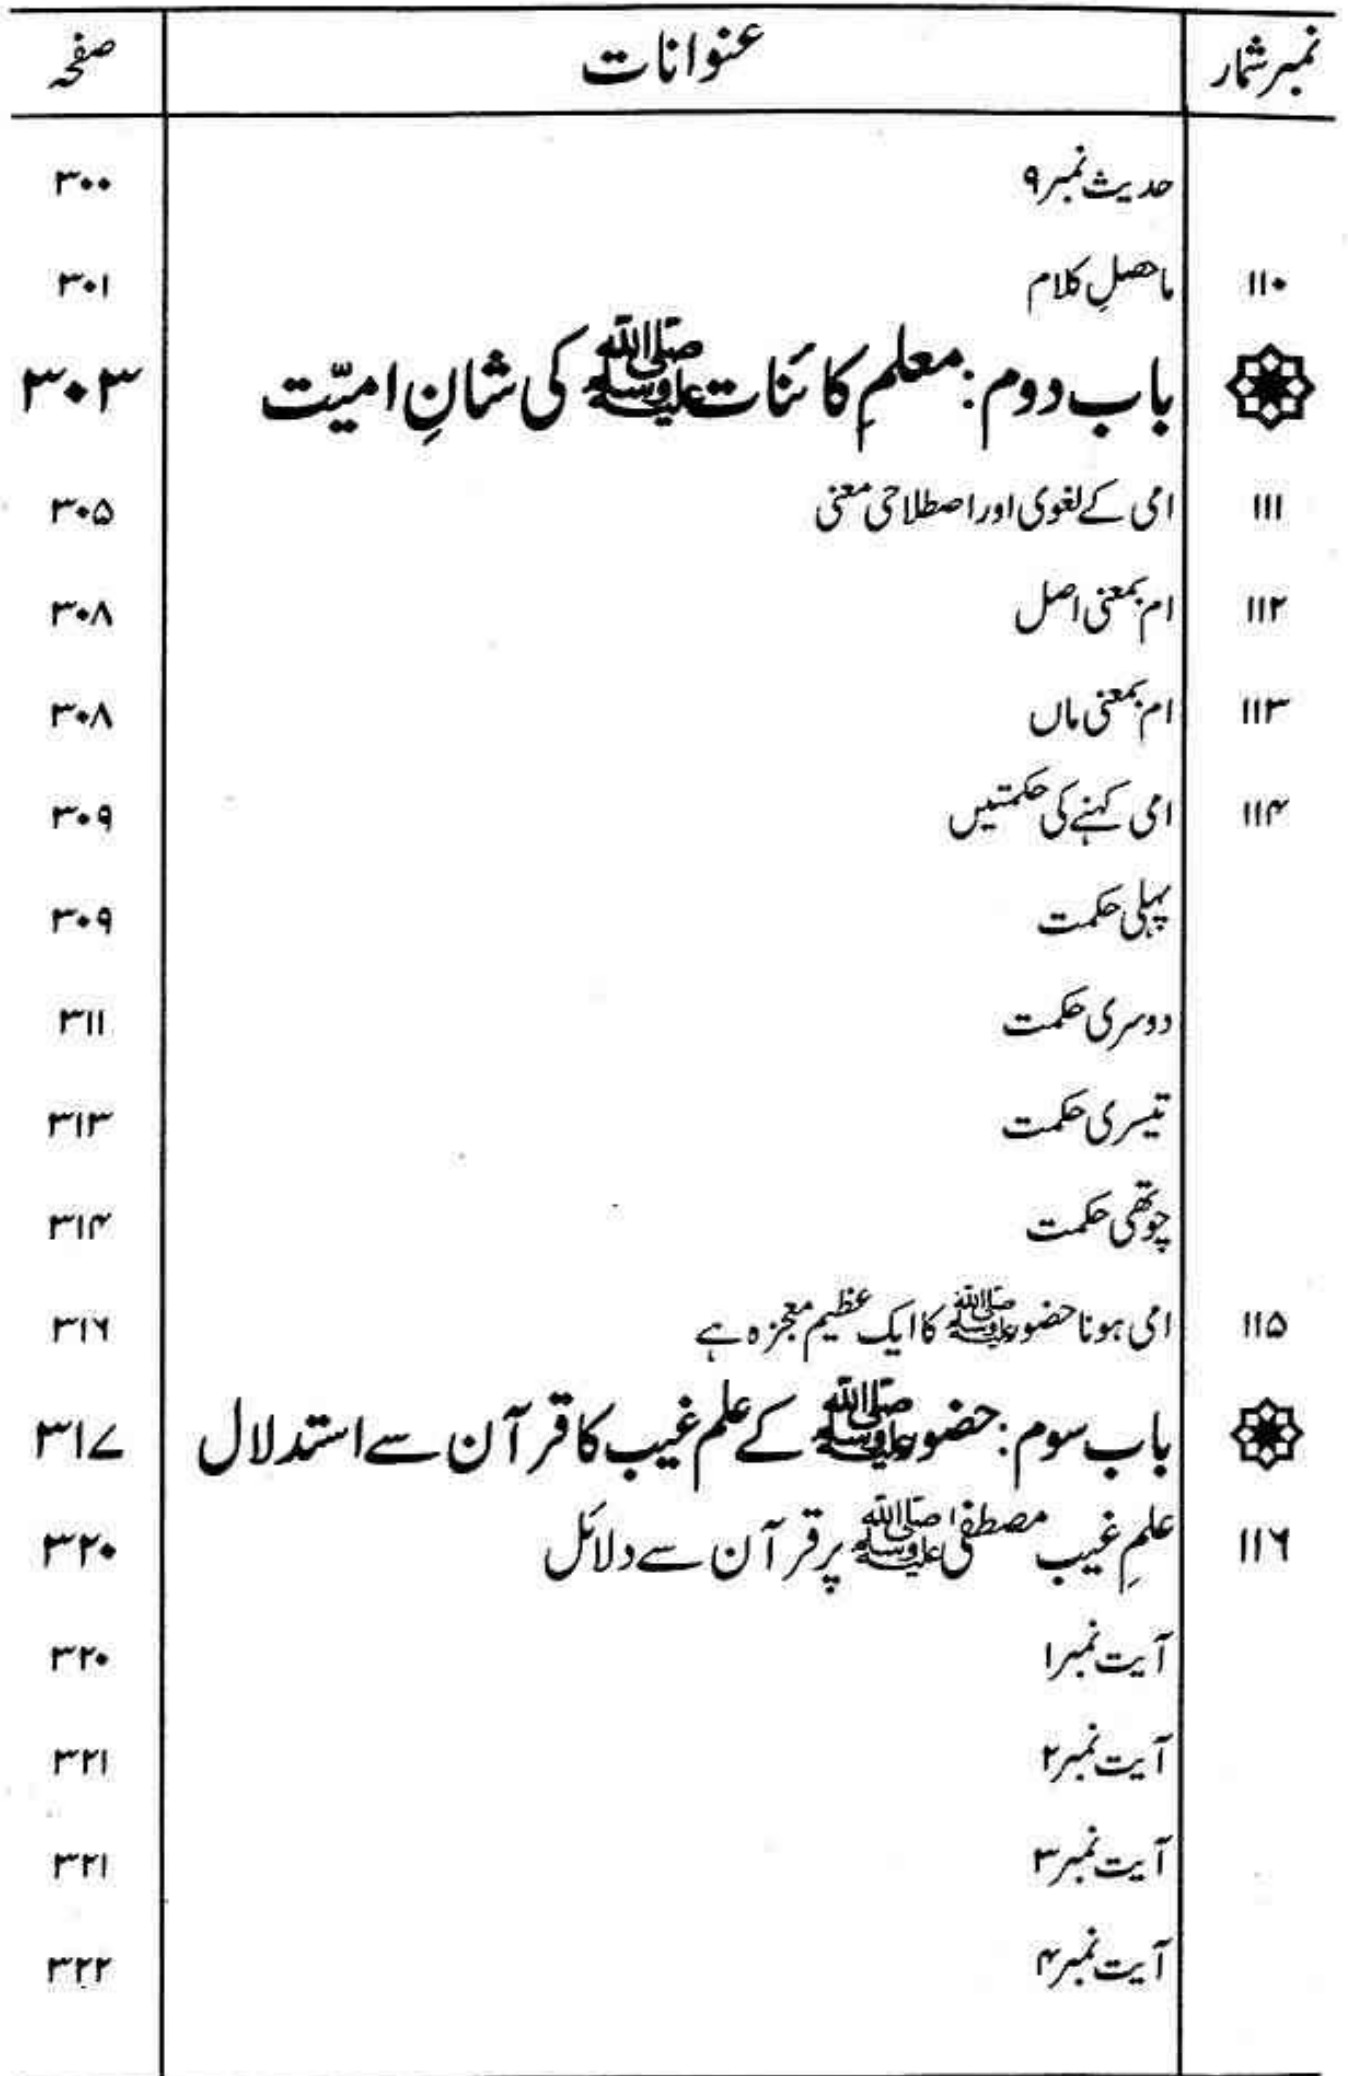 نمبرشمار عنوانات صفحہ
حدیث نمبر۹ ۳۰۰
۱۱۰ ماحصلِ کلام ۳۰۱
باب دوم: معلمِ کائنات ﷺ کی شانِ امیّت ۳۰۳
۱۱۱ امی کے لغوی اور اصطلاحی معنی ۳۰۵
۱۱۲ ام بمعنی اصل ۳۰۸
۱۱۳ ام بمعنی ماں ۳۰۸
۱۱۴ امی کہنے کی حکمتیں ۳۰۹
پہلی حکمت ۳۰۹
دوسری حکمت ۳۱۱
تیسری حکمت ۳۱۳
چوتھی حکمت ۳۱۴
۱۱۵ امی ہونا حضور ﷺ کا ایک عظیم معجزہ ہے ۳۱۶
باب سوم: حضور ﷺ کے علم غیب کا قرآن سے استدلال ۳۱۷
۱۱۶ علمِ غیب مصطفیٰ ﷺ پر قرآن سے دلائل ۳۲۰
آیت نمبر۱ ۳۲۰
آیت نمبر۲ ۳۲۱
آیت نمبر۳ ۳۲۱
آیت نمبر۴ ۳۲۲